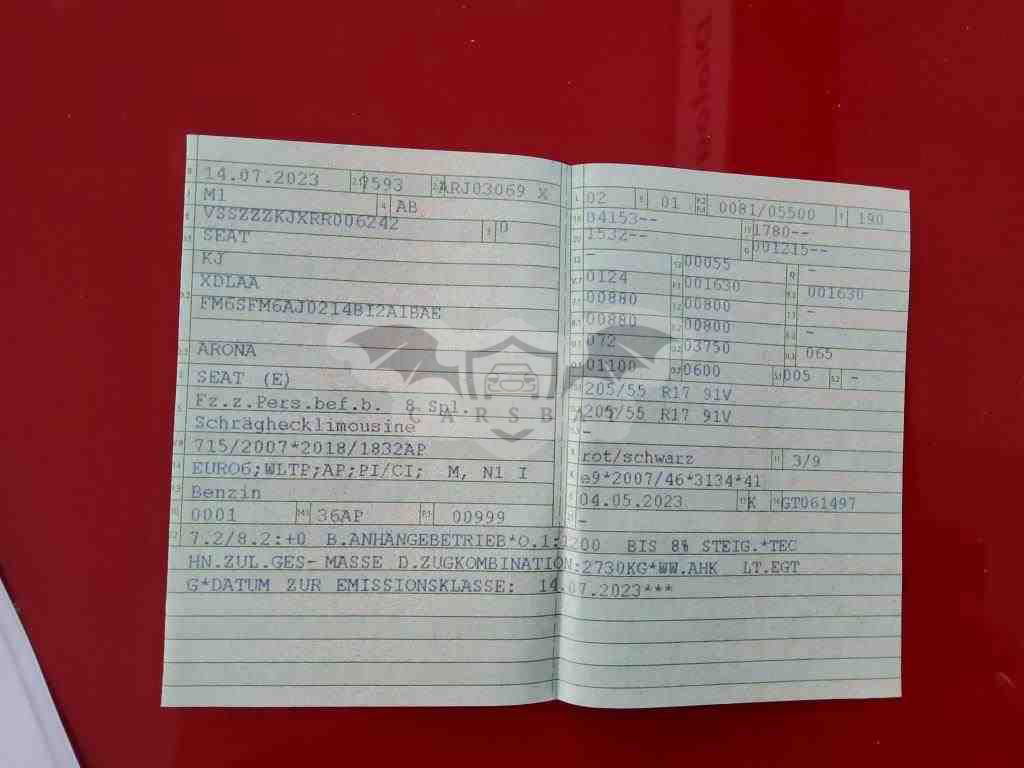 14.07.2023 7593 ARJ03069 X
M1 AB
VSSZZZKJXRR006242 0
SEAT
KJ
XDLAA
FM6SFM6AJ0214B12A1BAE
ARONA
SEAT (E)
Fz.z.Pers.bef.b. 8 Spl.
Schräghecklimousine
715/2007*2018/1832AP
EURO6;WLTP;AP;PI/CI; M, N1 I
Benzin
0001 36AP 00999
02 01 0081/05500 190
04153-- 1780--
1532-- 001215--
- 00055 -
0124 001630 001630
00880 00800 -
00880 00800 -
072 03750 065
01100 0600 005 -
205/55 R17 91V
205/55 R17 91V
-
rot/schwarz 3/9
e9*2007/46*3134*41
04.05.2023 K GT061497
-
7.2/8.2:+0 B.ANHÄNGEBETRIEB*O.1:1200 BIS 8% STEIG.*TEC
HN.ZUL.GES-MASSE D.ZUGKOMBINATION:2730KG*WW.AHK LT.EGT
G*DATUM ZUR EMISSIONSKLASSE: 14.07.2023***